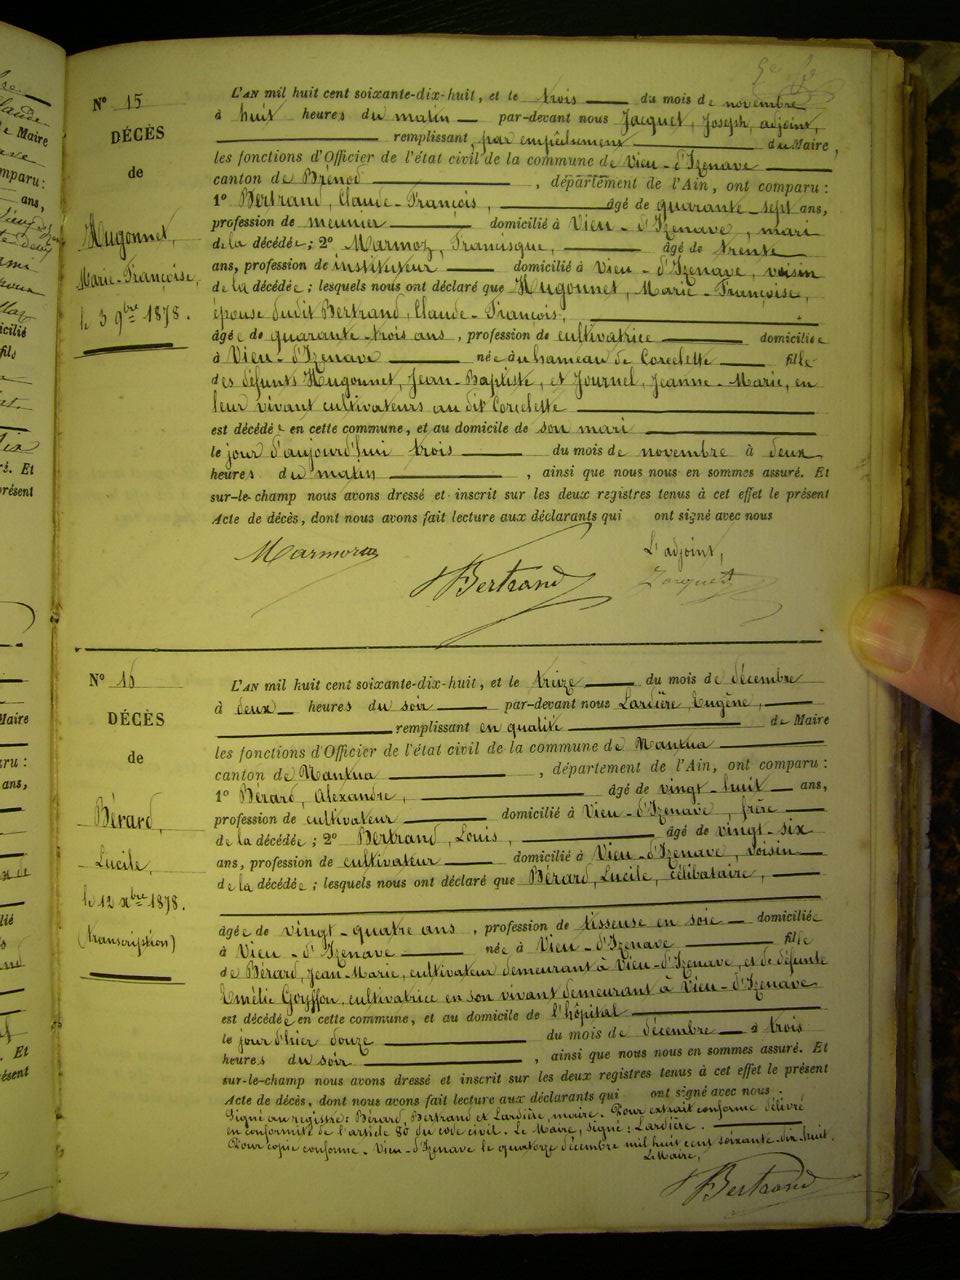 N° 15
DÉCÈS
de
Hugonnet,
Marie-Françoise,
le 3 9bre 1878.
L'AN mil huit cent soixante-dix-huit, et le trois du mois de novembre
à huit heures du matin par-devant nous Jacquet, Joseph, adjoint,
remplissant, par empêchement du Maire,
les fonctions d'Officier de l'état civil de la commune de Vieu-d'Izenave
canton de Brénod, département de l'Ain, ont comparu :
1° Bertrand, Claude-François, âgé de quarante-sept ans,
profession de meunier domicilié à Vieu-d'Izenave, mari
de la décédée; 2° Marmoz, Francisque, âgé de trente
ans, profession de instituteur domicilié à Vieu-d'Izenave, voisin
de la décédée; lesquels nous ont déclaré que Hugonnet, Marie-Françoise,
épouse dudit Bertrand, Claude-François,
âgée de quarante-trois ans, profession de cultivatrice domiciliée
à Vieu-d'Izenave née au hameau de Corcelette fille
des défunts Hugonnet, Jean-Baptiste, et Journel, Jeanne-Marie, en
leur vivant cultivateurs au dit Corcelette
est décédée en cette commune, et au domicile de son mari
le jour d'aujourd'hui trois du mois de novembre à deux
heures du matin, ainsi que nous nous en sommes assuré. Et
sur-le-champ nous avons dressé et inscrit sur les deux registres tenus à cet effet le présent
Acte de décès, dont nous avons fait lecture aux déclarants qui ont signé avec nous
L'adjoint,
Marmoz
Bertrand
Jacquet
N° 16
DÉCÈS
de
Bérard,
Lucile,
le 12 xbre 1878.
(transcription)
L'AN mil huit cent soixante-dix-huit, et le treize du mois de décembre
à deux heures du soir par-devant nous Lardière, Eugène,
remplissant en qualité de Maire
les fonctions d'Officier de l'état civil de la commune de Nantua
canton de Nantua, département de l'Ain, ont comparu :
1° Bérard, Alexandre, âgé de vingt-huit ans,
profession de cultivateur domicilié à Vieu-d'Izenave, frère
de la décédée; 2° Bertrand, Louis, âgé de vingt-six
ans, profession de cultivateur domicilié à Vieu-d'Izenave, voisin
de la décédée; lesquels nous ont déclaré que Bérard, Lucile, célibataire,
âgée de vingt-quatre ans, profession de tisseuse en soie domiciliée
à Vieu-d'Izenave née à Vieu-d'Izenave fille
de Bérard, Jean-Marie, cultivateur demeurant à Vieu-d'Izenave, et de défunte
Emélie Goyffon, cultivatrice en son vivant demeurant à Vieu-d'Izenave
est décédée en cette commune, et au domicile de l'hôpital
le jour d'hier douze du mois de décembre à trois
heures du soir, ainsi que nous nous en sommes assuré. Et
sur-le-champ nous avons dressé et inscrit sur les deux registres tenus à cet effet le présent
Acte de décès, dont nous avons fait lecture aux déclarants qui ont signé avec nous.
Signé au registre: Bérard, Bertrand et Lardière, maire. Pour extrait conforme délivré
en conformité de l'article 80 du code civil. Le Maire, signé: Lardière.
Pour copie conforme. Vieu-d'Izenave le quatorze décembre mil huit cent soixante-dix-huit.
Le Maire,
Bertrand